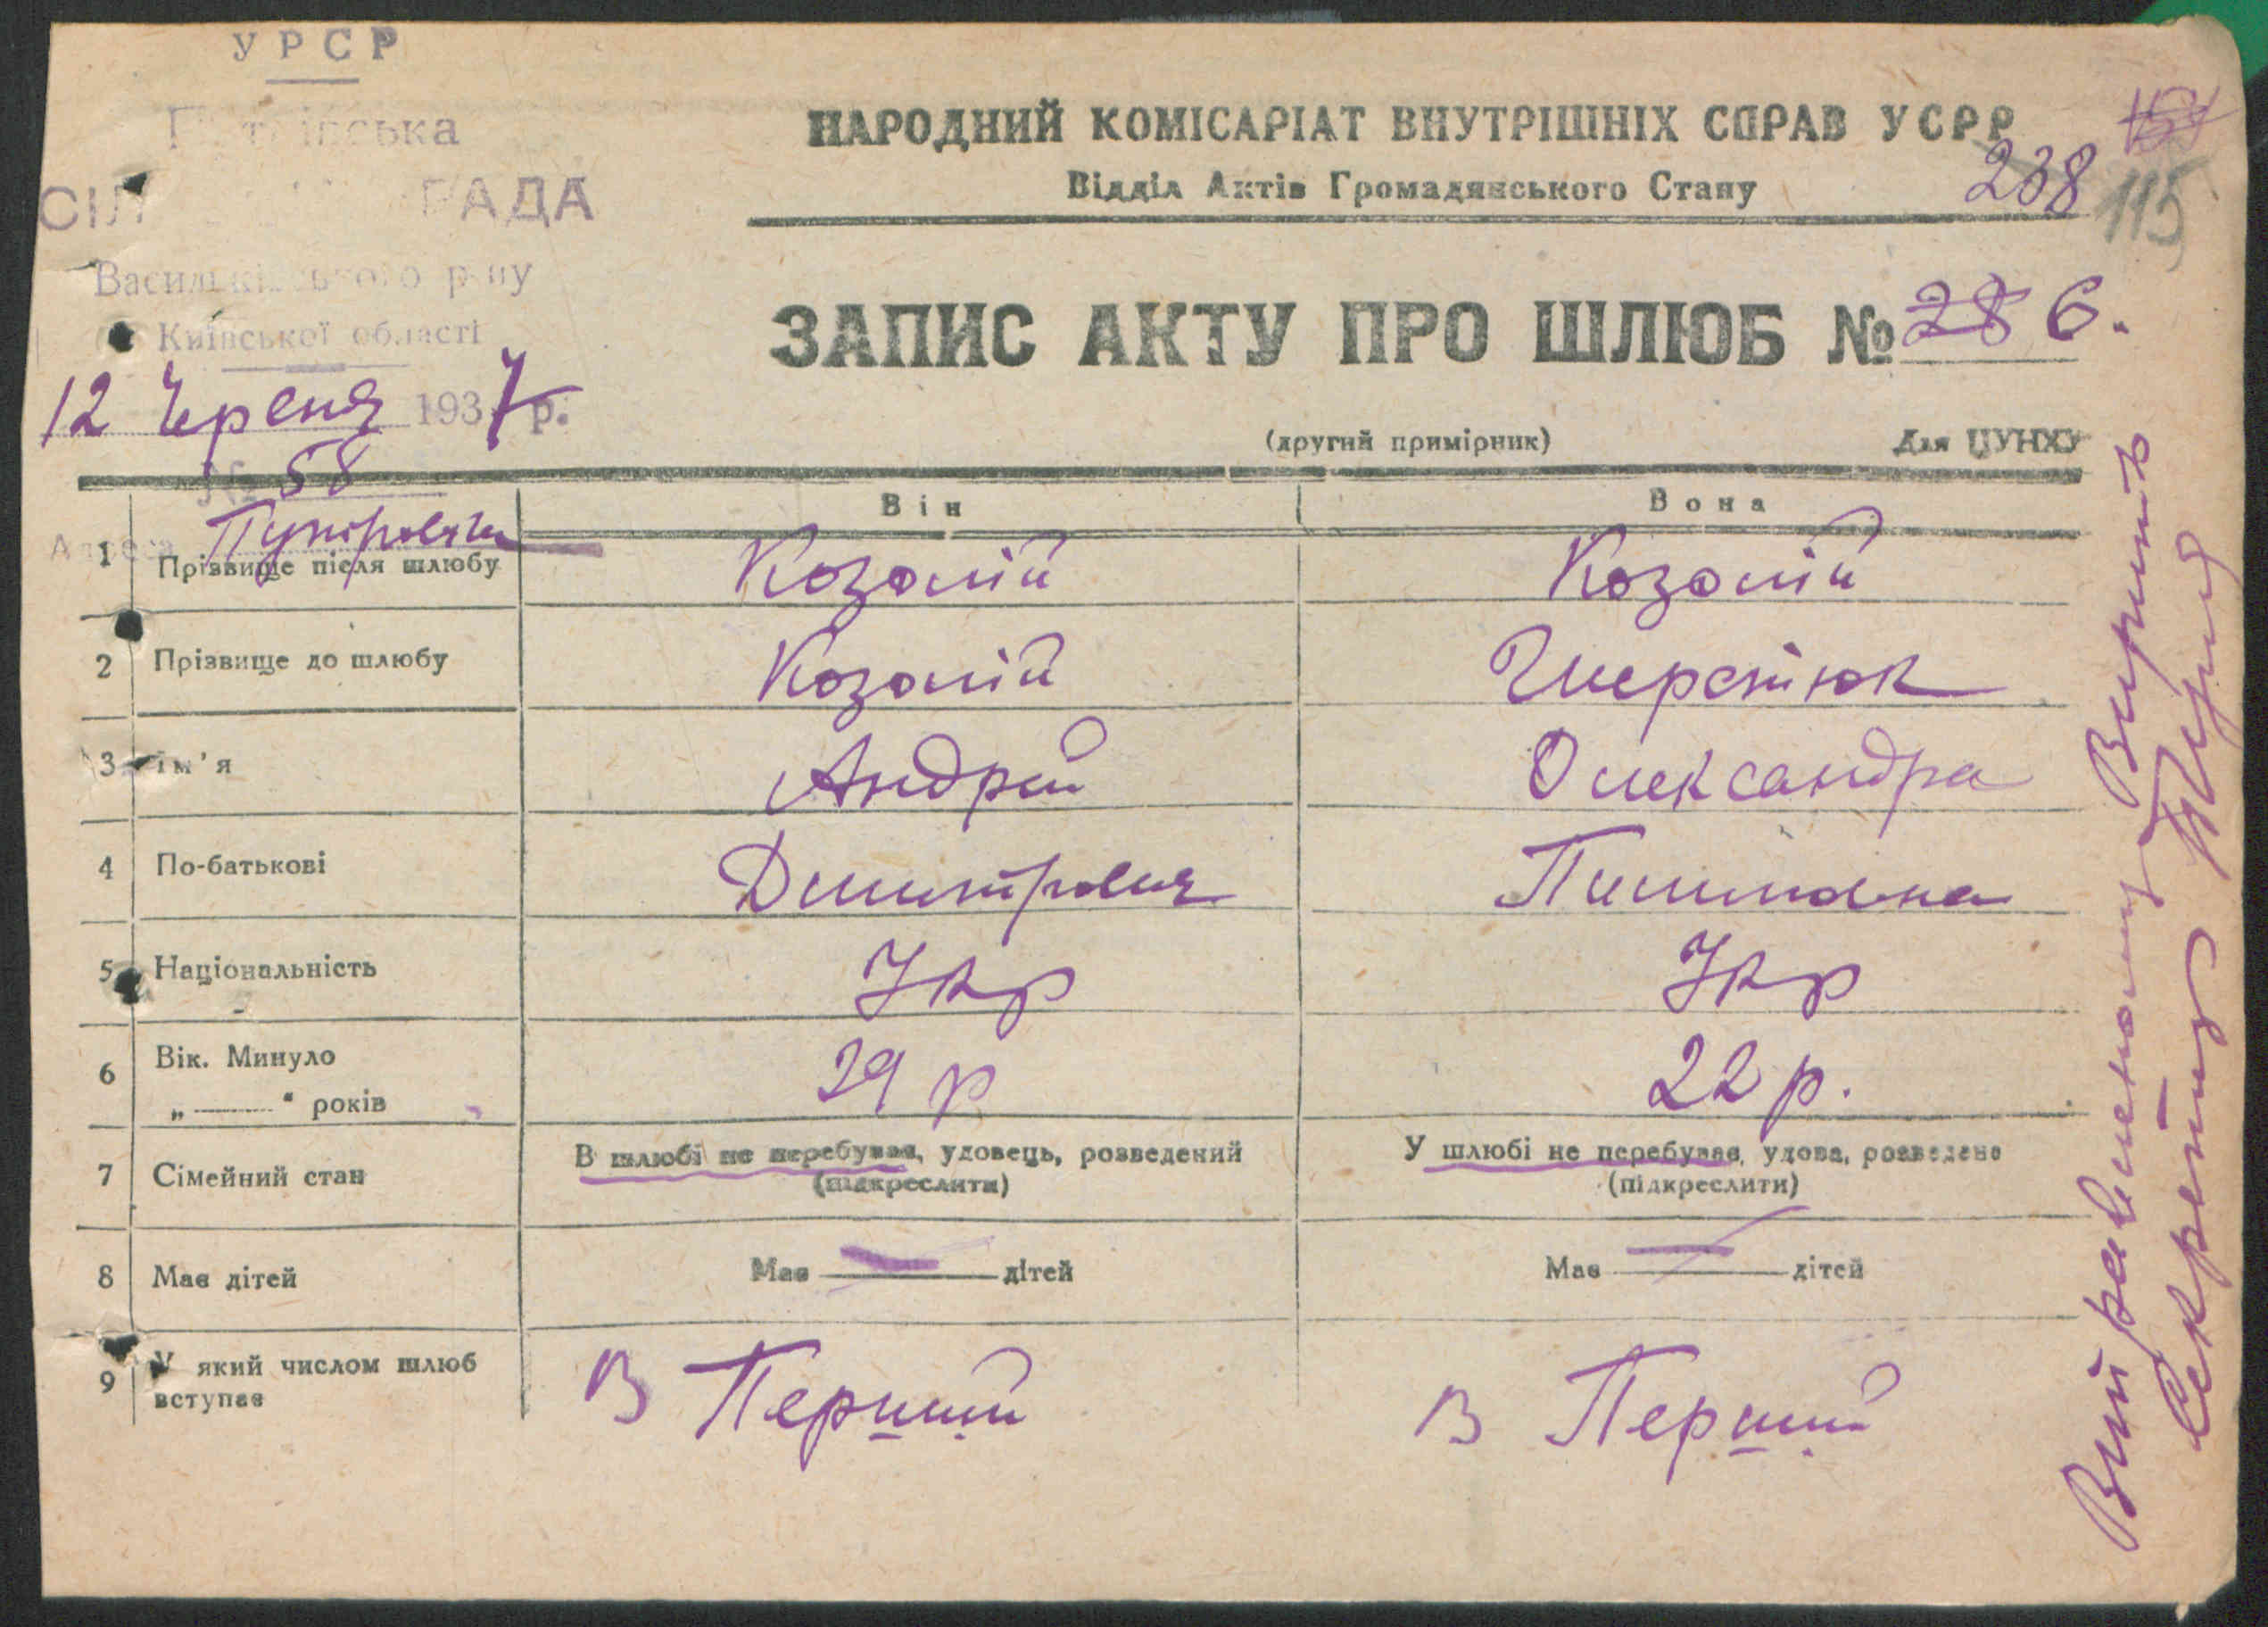 УРСР
РАДА
Київської області
12 Червня 1937 р.
№ 58
НАРОДНИЙ КОМІСАРІАТ ВНУТРІШНІХ СПРАВ УСРР
Відділ Актів Громадянського Стану
238
115
ЗАПИС АКТУ ПРО ШЛЮБ № 28 6.
(другий примірник) Для ЦУНХУ
Він Вона
1 Прізвище після шлюбу Козолій Козолій
2 Прізвище до шлюбу Козолій Шерстюк
3 ім'я Андрій Олександра
4 По-батькові Дмитрович Пилиповна
5 Національність Укр Укр
6 Вік. Минуло
„ — “ років 29 р 22 р.
7 Сімейний стан В шлюбі не перебував, удовець, розведений У шлюбі не перебував, удова, розведена
(підкреслити) (підкреслити)
8 Має дітей Має — дітей Має — дітей
9 У який числом шлюб
вступає В Перший В Перший
Виправленому Вірить
Секретар